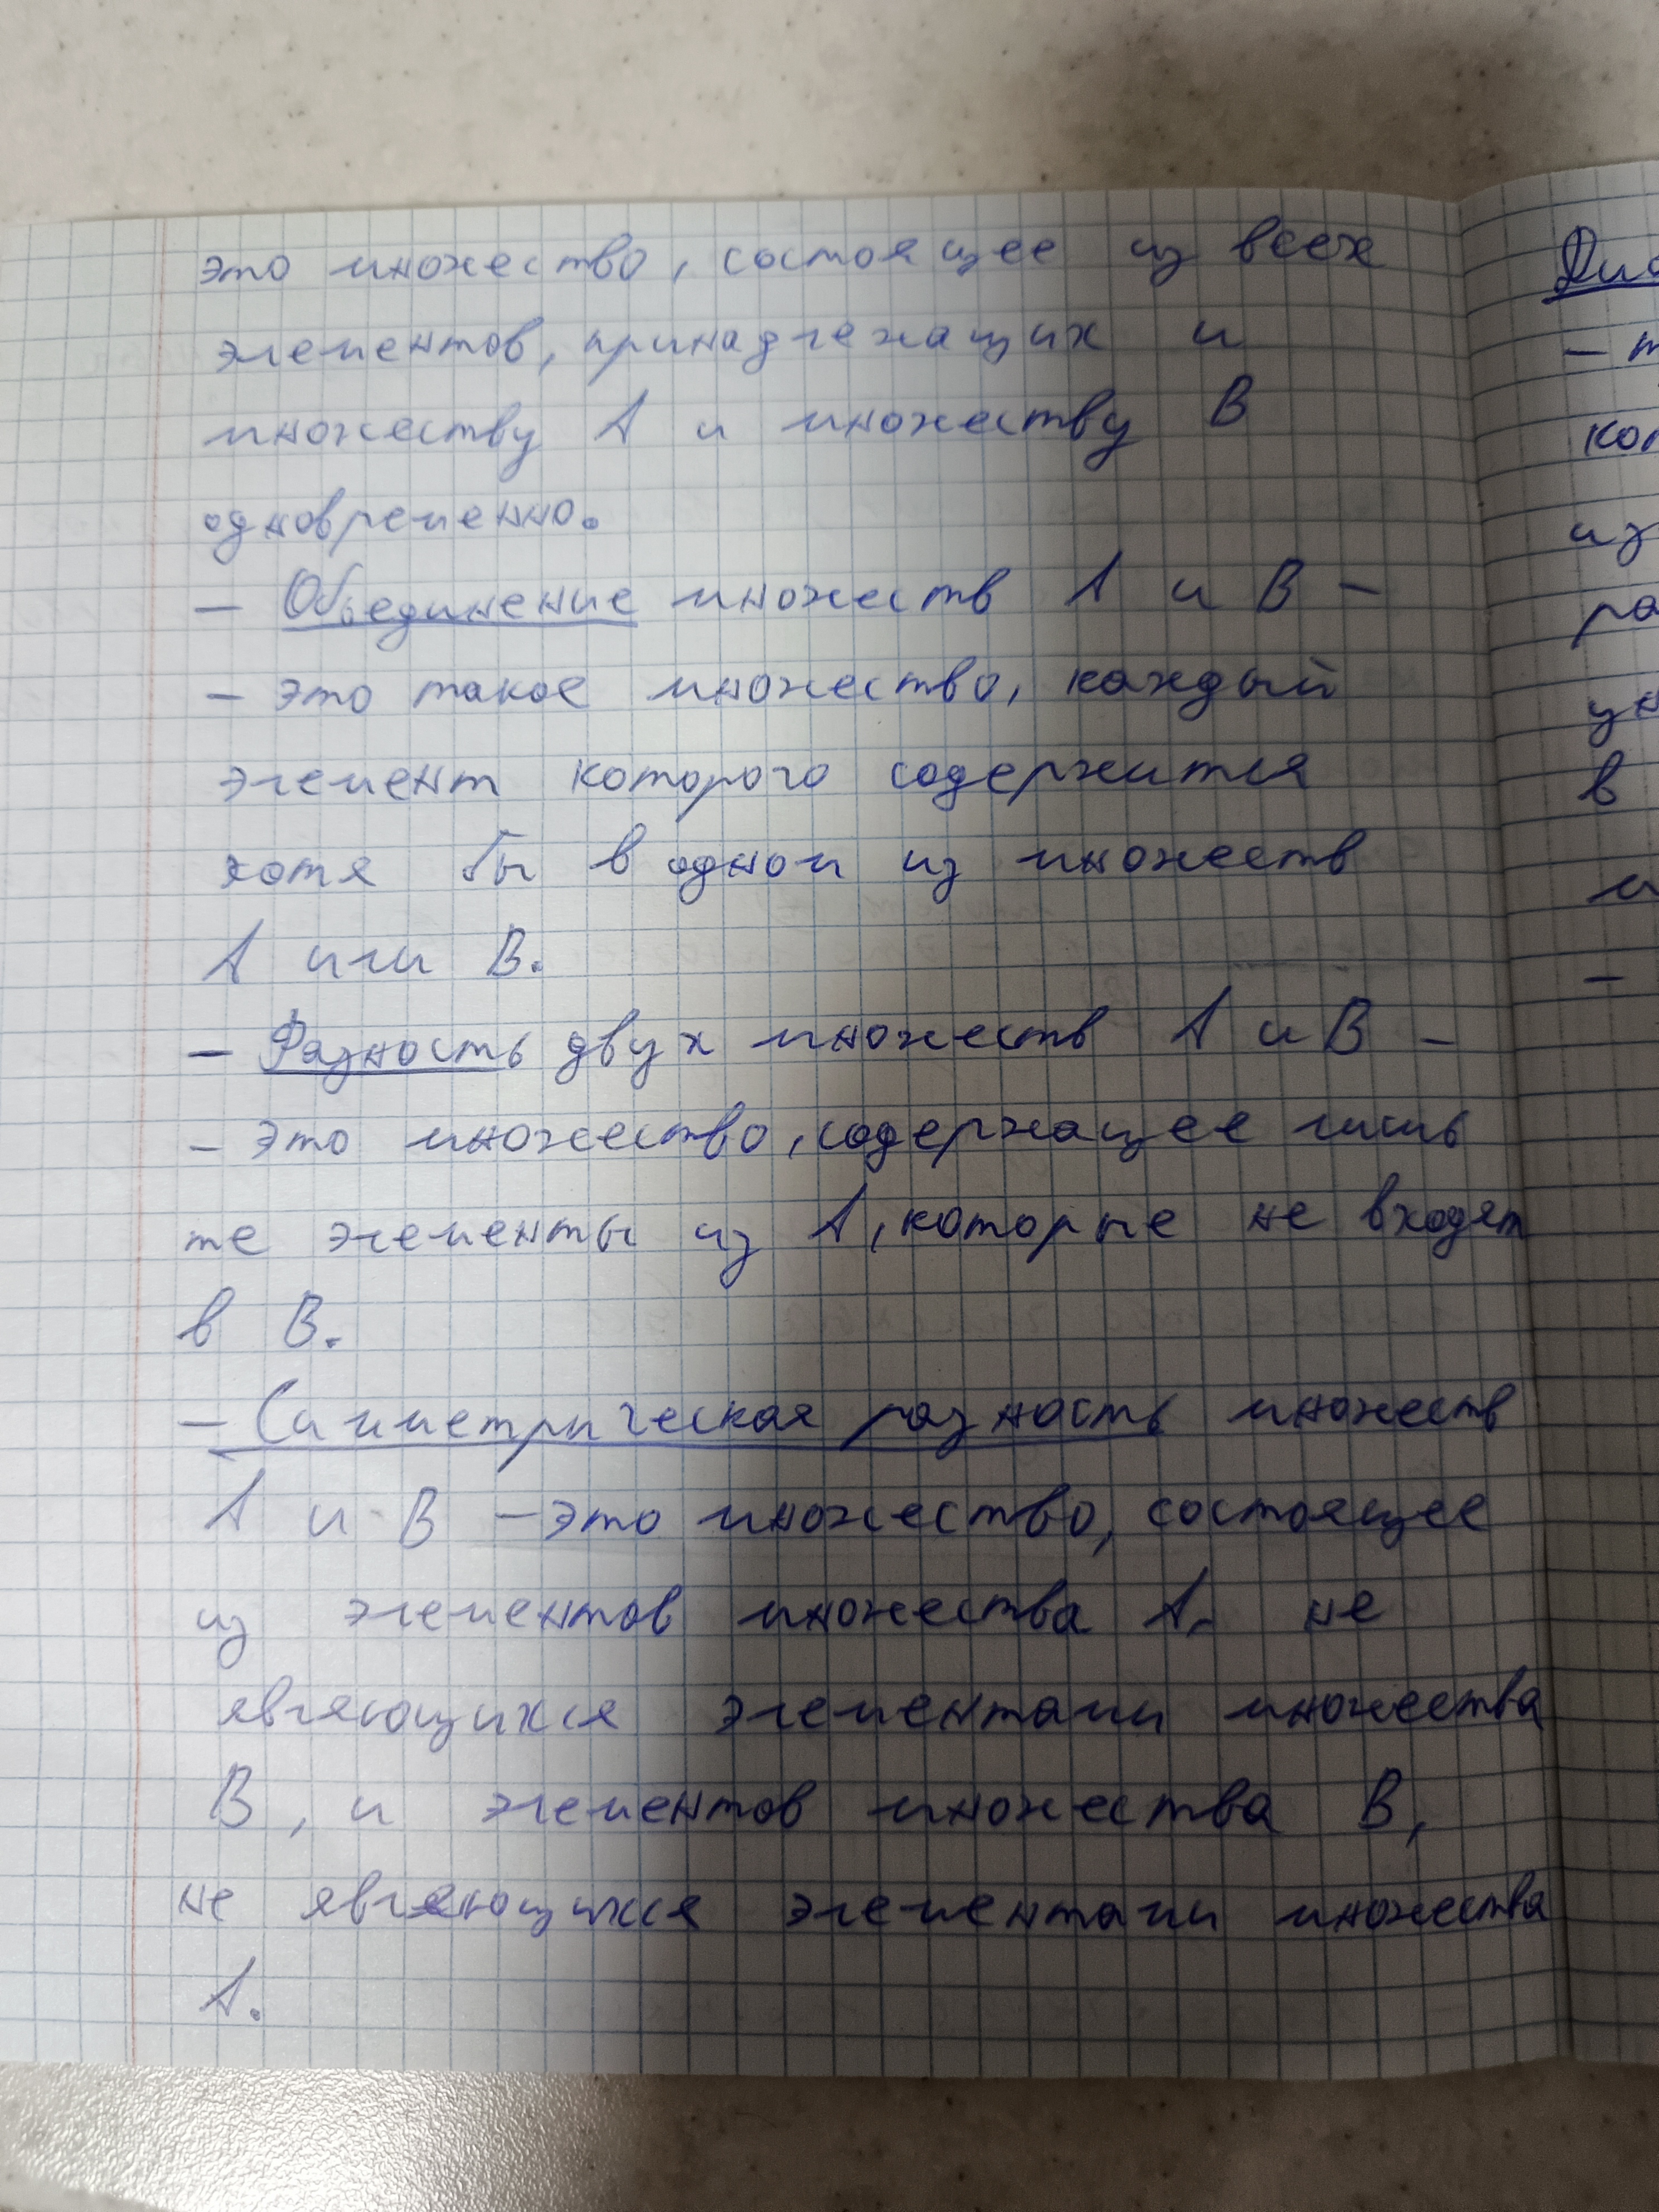 это множество, состоящее из всех
элементов, принадлежащих и
множеству А и множеству В
одновременно.
— Объединение множеств А и В —
— это такое множество, каждый
элемент которого содержится
хотя бы в одном из множеств
А или В.
— Разность двух множеств А и В —
— это множество, содержащее лишь
те элементы из А, которые не входят
в В.
— Симметрическая разность множеств
А и В — это множество, состоящее
из элементов множества А, не
являющихся элементами множества
В, и элементов множества В,
не являющихся элементами множества
А.
из
в